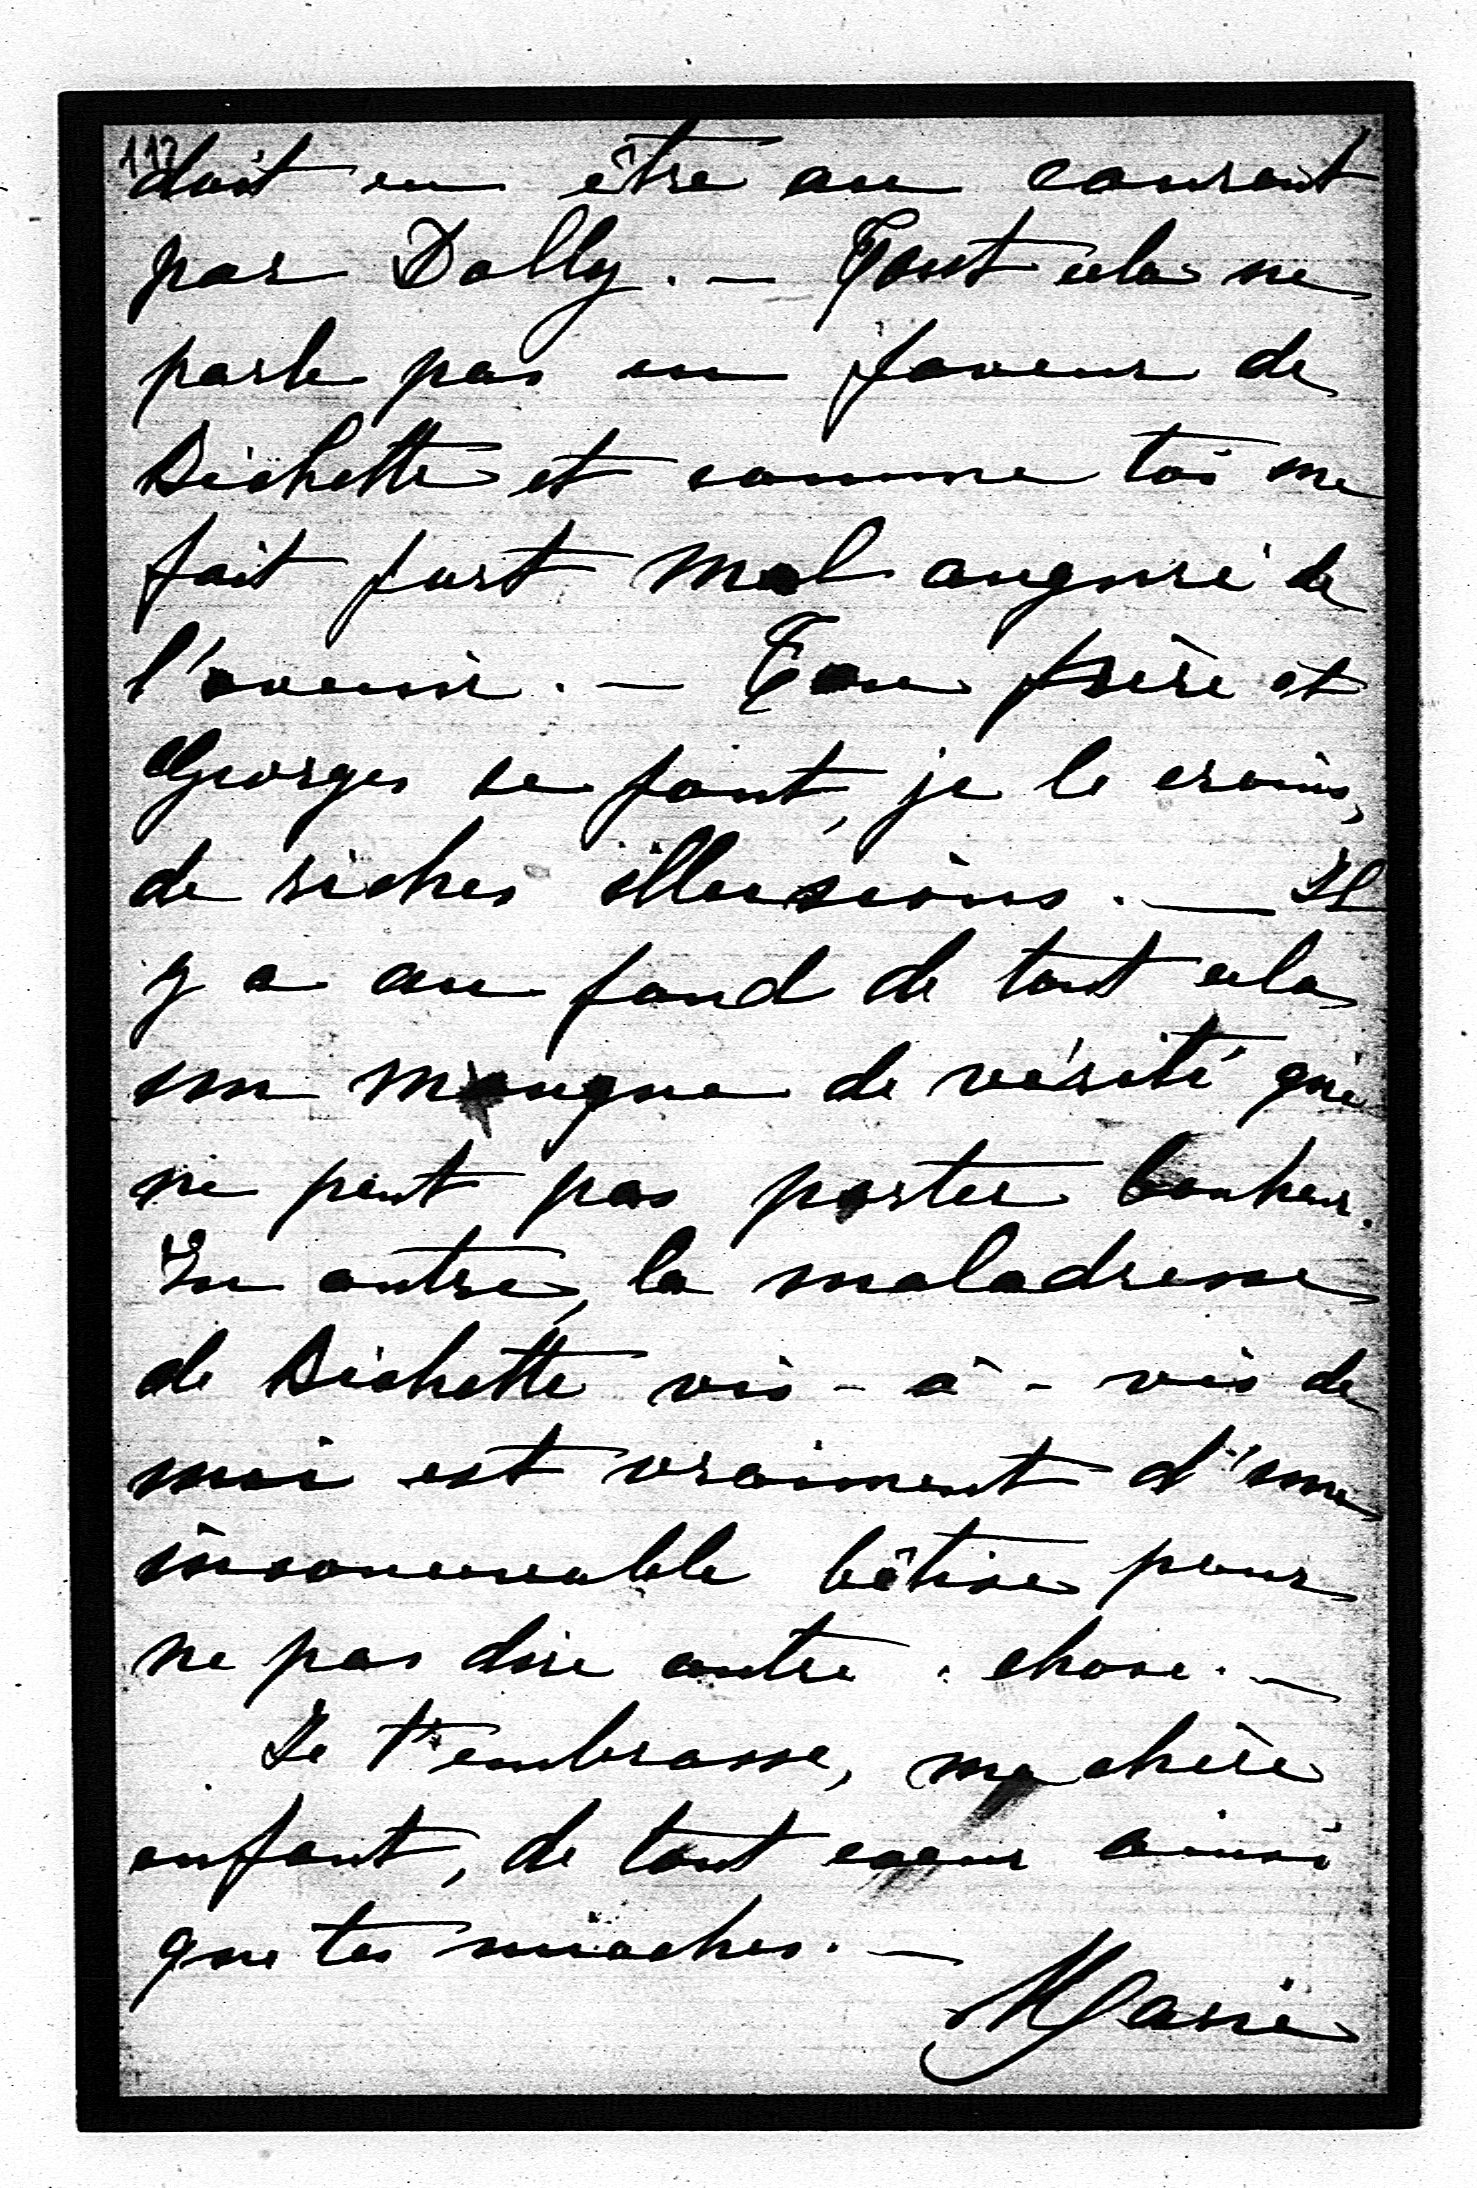 117
doit en être au courant
par Dolly. — Tout cela ne
parle pas en faveur de
Bichette et comme toi me
fait fort mal augurer de
l'avenir. — Ton frère et
Georges se font, je le crains,
de riches illusions. — Il
y a au fond de tout cela
un manque de vérité qui
ne peut pas porter bonheur.
En outre, la maladresse
de Bichette vis-à-vis de
moi est vraiment d'une
inconcevable bêtise pour
ne pas dire autre chose. —
Je t'embrasse, ma chère
enfant, de tout coeur ainsi
que tes mioches. —
Marie